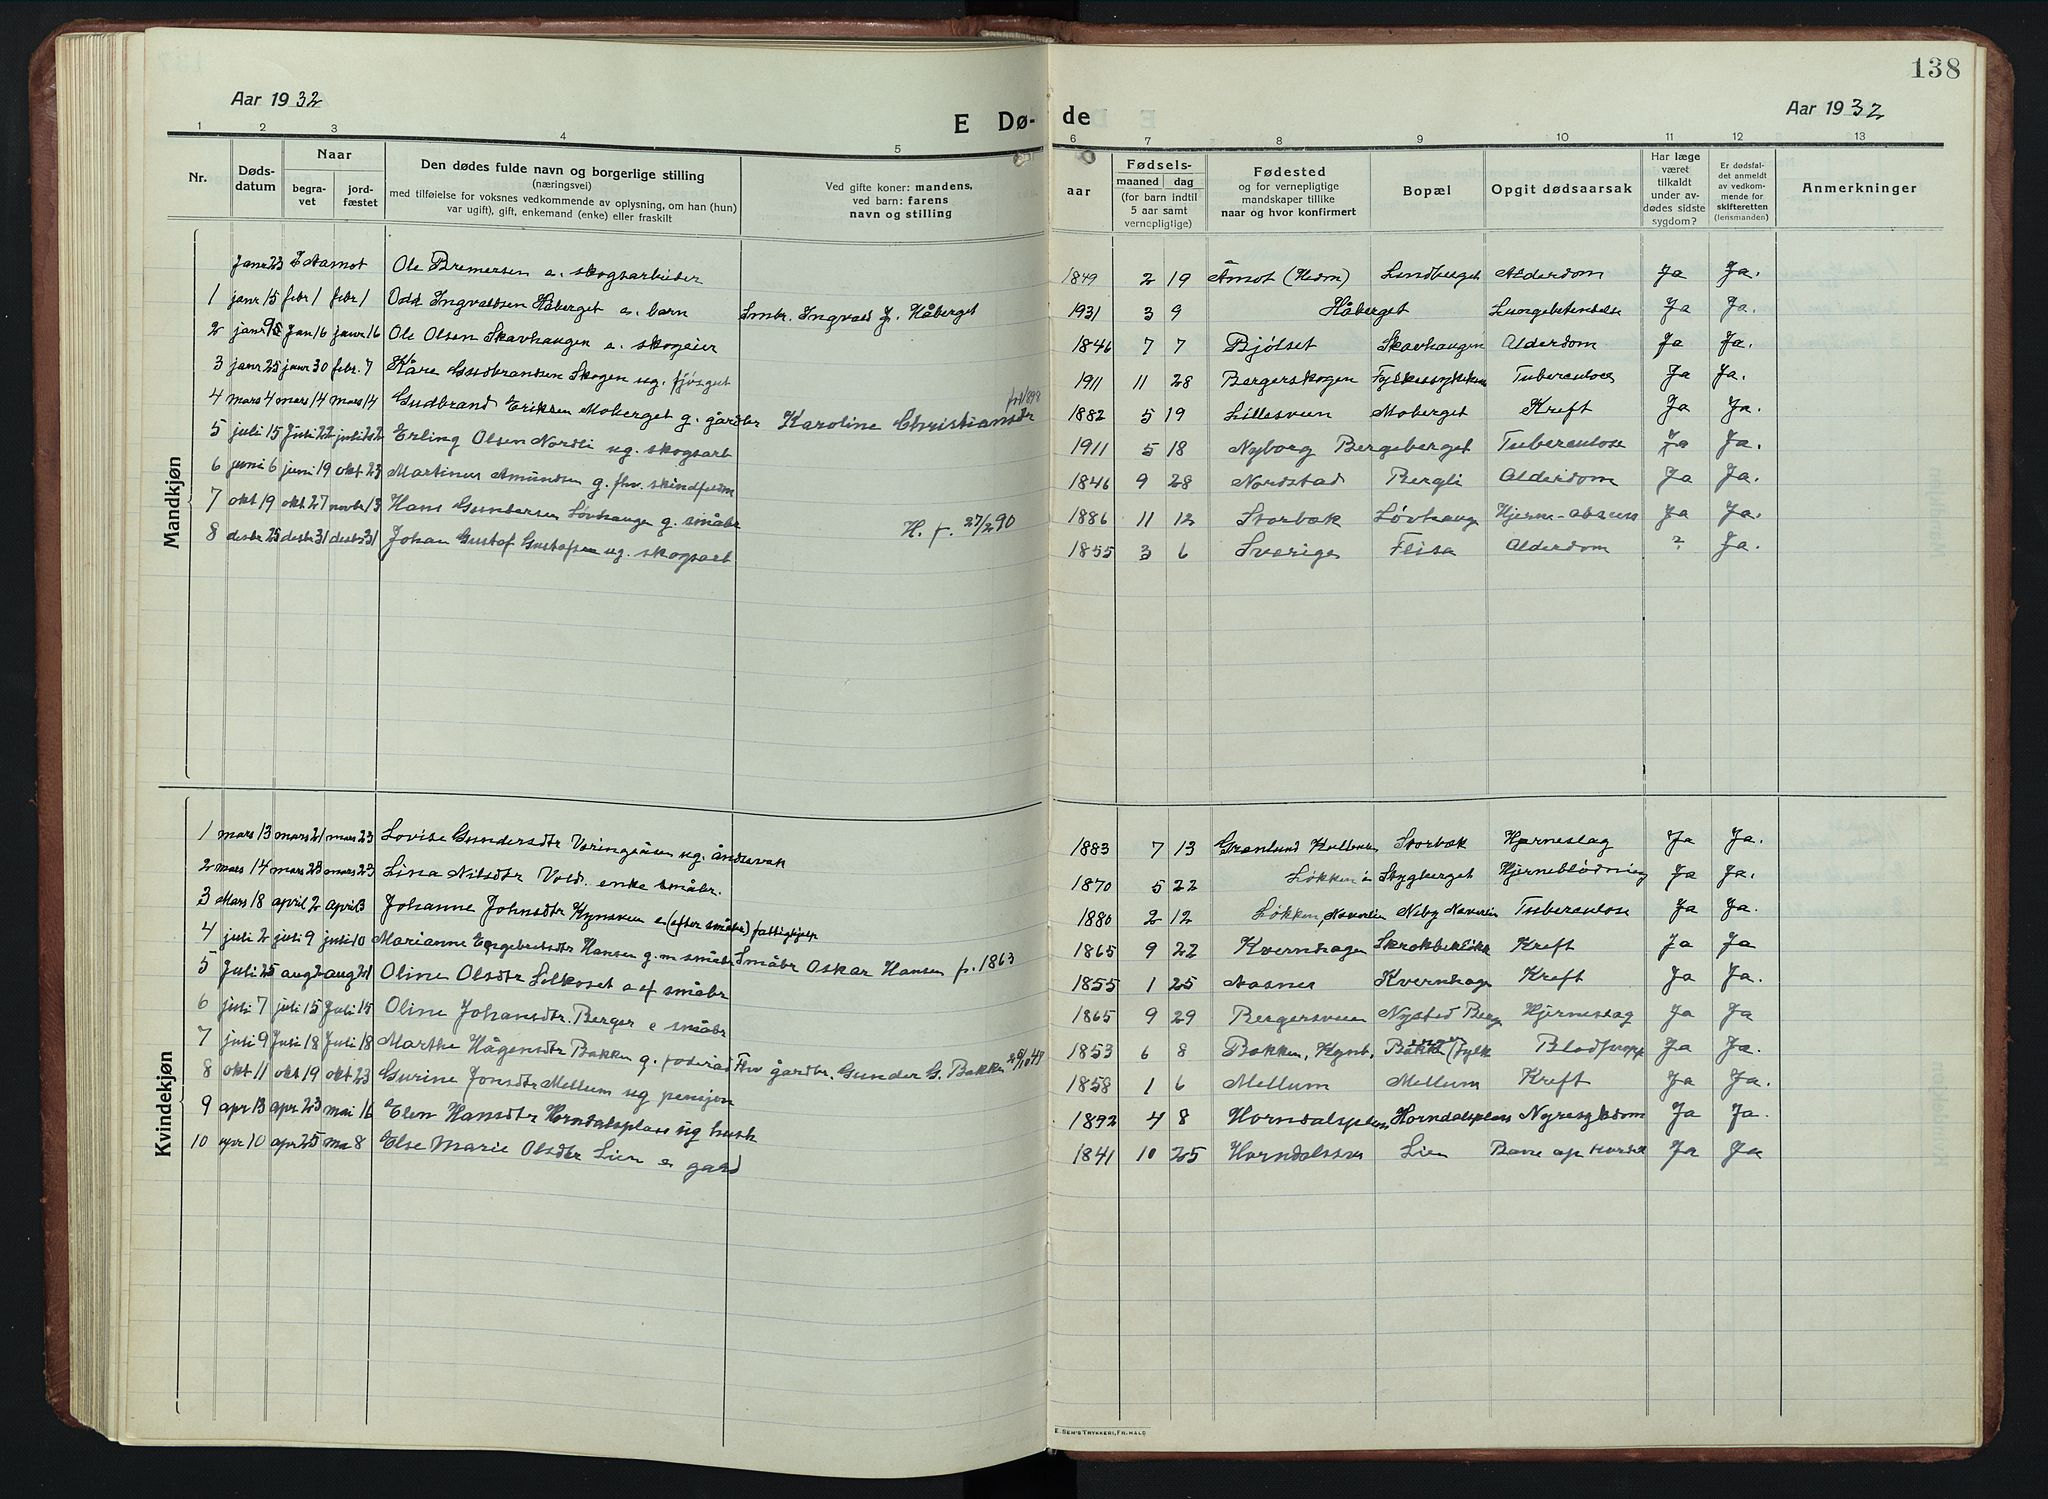 138
Aar 1932
E Dø- de
Aar 1932
1 2 3 4 5 6 7 8 9 10 11 12 13
Nr.
Døds-datum
Naar
begra-vet
jord-fæstet
Den dødes fulde navn og borgerlige stilling
(næringsvei)
med tilføielse for voksnes vedkommende av oplysning, om han (hun)
var ugift), gift, enkemand (enke) eller fraskilt
Ved gifte koner: mandens,
ved barn: farens
navn og stilling
aar
Fødsels-
maaned dag
(for barn indtil
5 aar samt
vernepligtige)
Fødested
og for vernepligtige
mandskaper tillike
naar og hvor konfirmert
Bopæl
Opgit dødsaarsak
Har læge
været
tilkaldt
under av-
dødes sidste
sygdom?
Er dødsfal-
det anmeldt
av vedkom-
mende for
skifteretten
(lensmanden)
Anmerkninger
Mandkjøn
Janr 23 Aamot Ole Bremersen e. skogsarbeider 1849 2 19 Åmot (Hedm) Lundberget Alderdom Ja Ja.
1 janr 15 febr 1 febr 1 Odd Ingvaldsen Håberget e. barn Smbr. Ingvald J. Håberget 1931 3 9 Håberget Lungebetendelse Ja Ja.
2 janr Jan 16 janr 16 Ole Olsen Skavhaugen e. skogeier 1846 7 7 Bjølset Skavhaugen Alderdom Ja Ja.
3 janr 25 janr 30 febr. 7 Kåre Gudbrandsen Skogen ug. fjøsgut 1911 11 28 Bergerskogen Fylkessykehus Tuberculose Ja Ja.
4 mars 4 mars 14 mars 14 Gudbrand Eriksen Moberget g. gårdbr Karoline Christiansdr 1882 5 19 Lillesveen Moberget Kreft Ja Ja.
5 juli 15 Juli 22 juli 22 Erling Olsen Nordli ug. skogsarb 1911 5 18 Nyborg Bergeberget Tuberculose Ja Ja.
6 juni 6 juni 19 okt 23 Martinus Amundsen g. fhv. skindfeldm 1846 9 28 Nordstad Bergli Alderdom Ja Ja.
7 okt 19 okt 27 novbr 13 Hans Gundersen Løvhaugen g. småbr H. f. 27/2 90 1886 11 12 Storbak Løvhaug Hjerne-abscess Ja Ja.
8 desbr 25 desbr 31 desbr 31 Johan Gustaf Gustafsen ug. skogsarb 1855 3 6 Sverige Flisa Alderdom ? Ja.
Kvindekjøn
1 mars 13 mars 21 mars 23 Lovise Gundersdtr Væringsåsen ug. åndssvak 1883 7 13 Grønlund Storbæk Hjerneslag Ja Ja.
2 mars 14 mars 23 mars 23 Lina Nilsdtr Vold. enke småbr. 1870 5 22 Løkken Stygberget Hjerneblødning Ja Ja.
3 Mars 18 april 2 april 3 Johanne Johnsdtr Kynsveen e (efter småbr) fattighjelp 1880 2 12 Løkken, Naverlien Neby Naverlien Tuberculose Ja Ja.
4 juli 2 juli 9 juli 10 Marianne Engebretsdtr Hansen g. m småbr Småbr Oskar Hansen f. 1863 1865 9 22 Kvernhagen Skrokbekli Kreft Ja Ja
5 Juli 25 aug 2 aug 21 Oline Olsdtr Silkoset e af småbr 1855 1 25 Aasnes Kvernhage Kreft Ja Ja.
6 juli 7 juli 15 Juli 15 Oline Johansdtr. Berger e småbr 1865 9 29 Bergersveen Nysted Berg Hjerneslag Ja Ja
7 juli 9 Juli 18 Juli 18 Marthe Hågensdtr Bakken g. føderåd Fhv gårdbr. Gunder G. Bakken 1853 6 8 Bakken, Kynb, Bakken (Fylk Blodpropp Ja Ja.
8 okt 11 okt 19 okt 23 Gurine Jonsdtr Mellum ug pensjon 1858 1 6 Mellum Mellum Kreft Ja Ja.
9 apr 13 apr 23 mai 16 Elen Hansdtr Horndalsplass ug hush 1892 4 8 Horndalsplass Horndalsplass Nyresykdom Ja Ja.
10 apr 10 apr 25 mai 8 Else Marie Olsdtr Lien e gard 1841 10 25 Horndalssve Lien Ja Ja
E. SEM'S TRYKKERI, FR.HALD